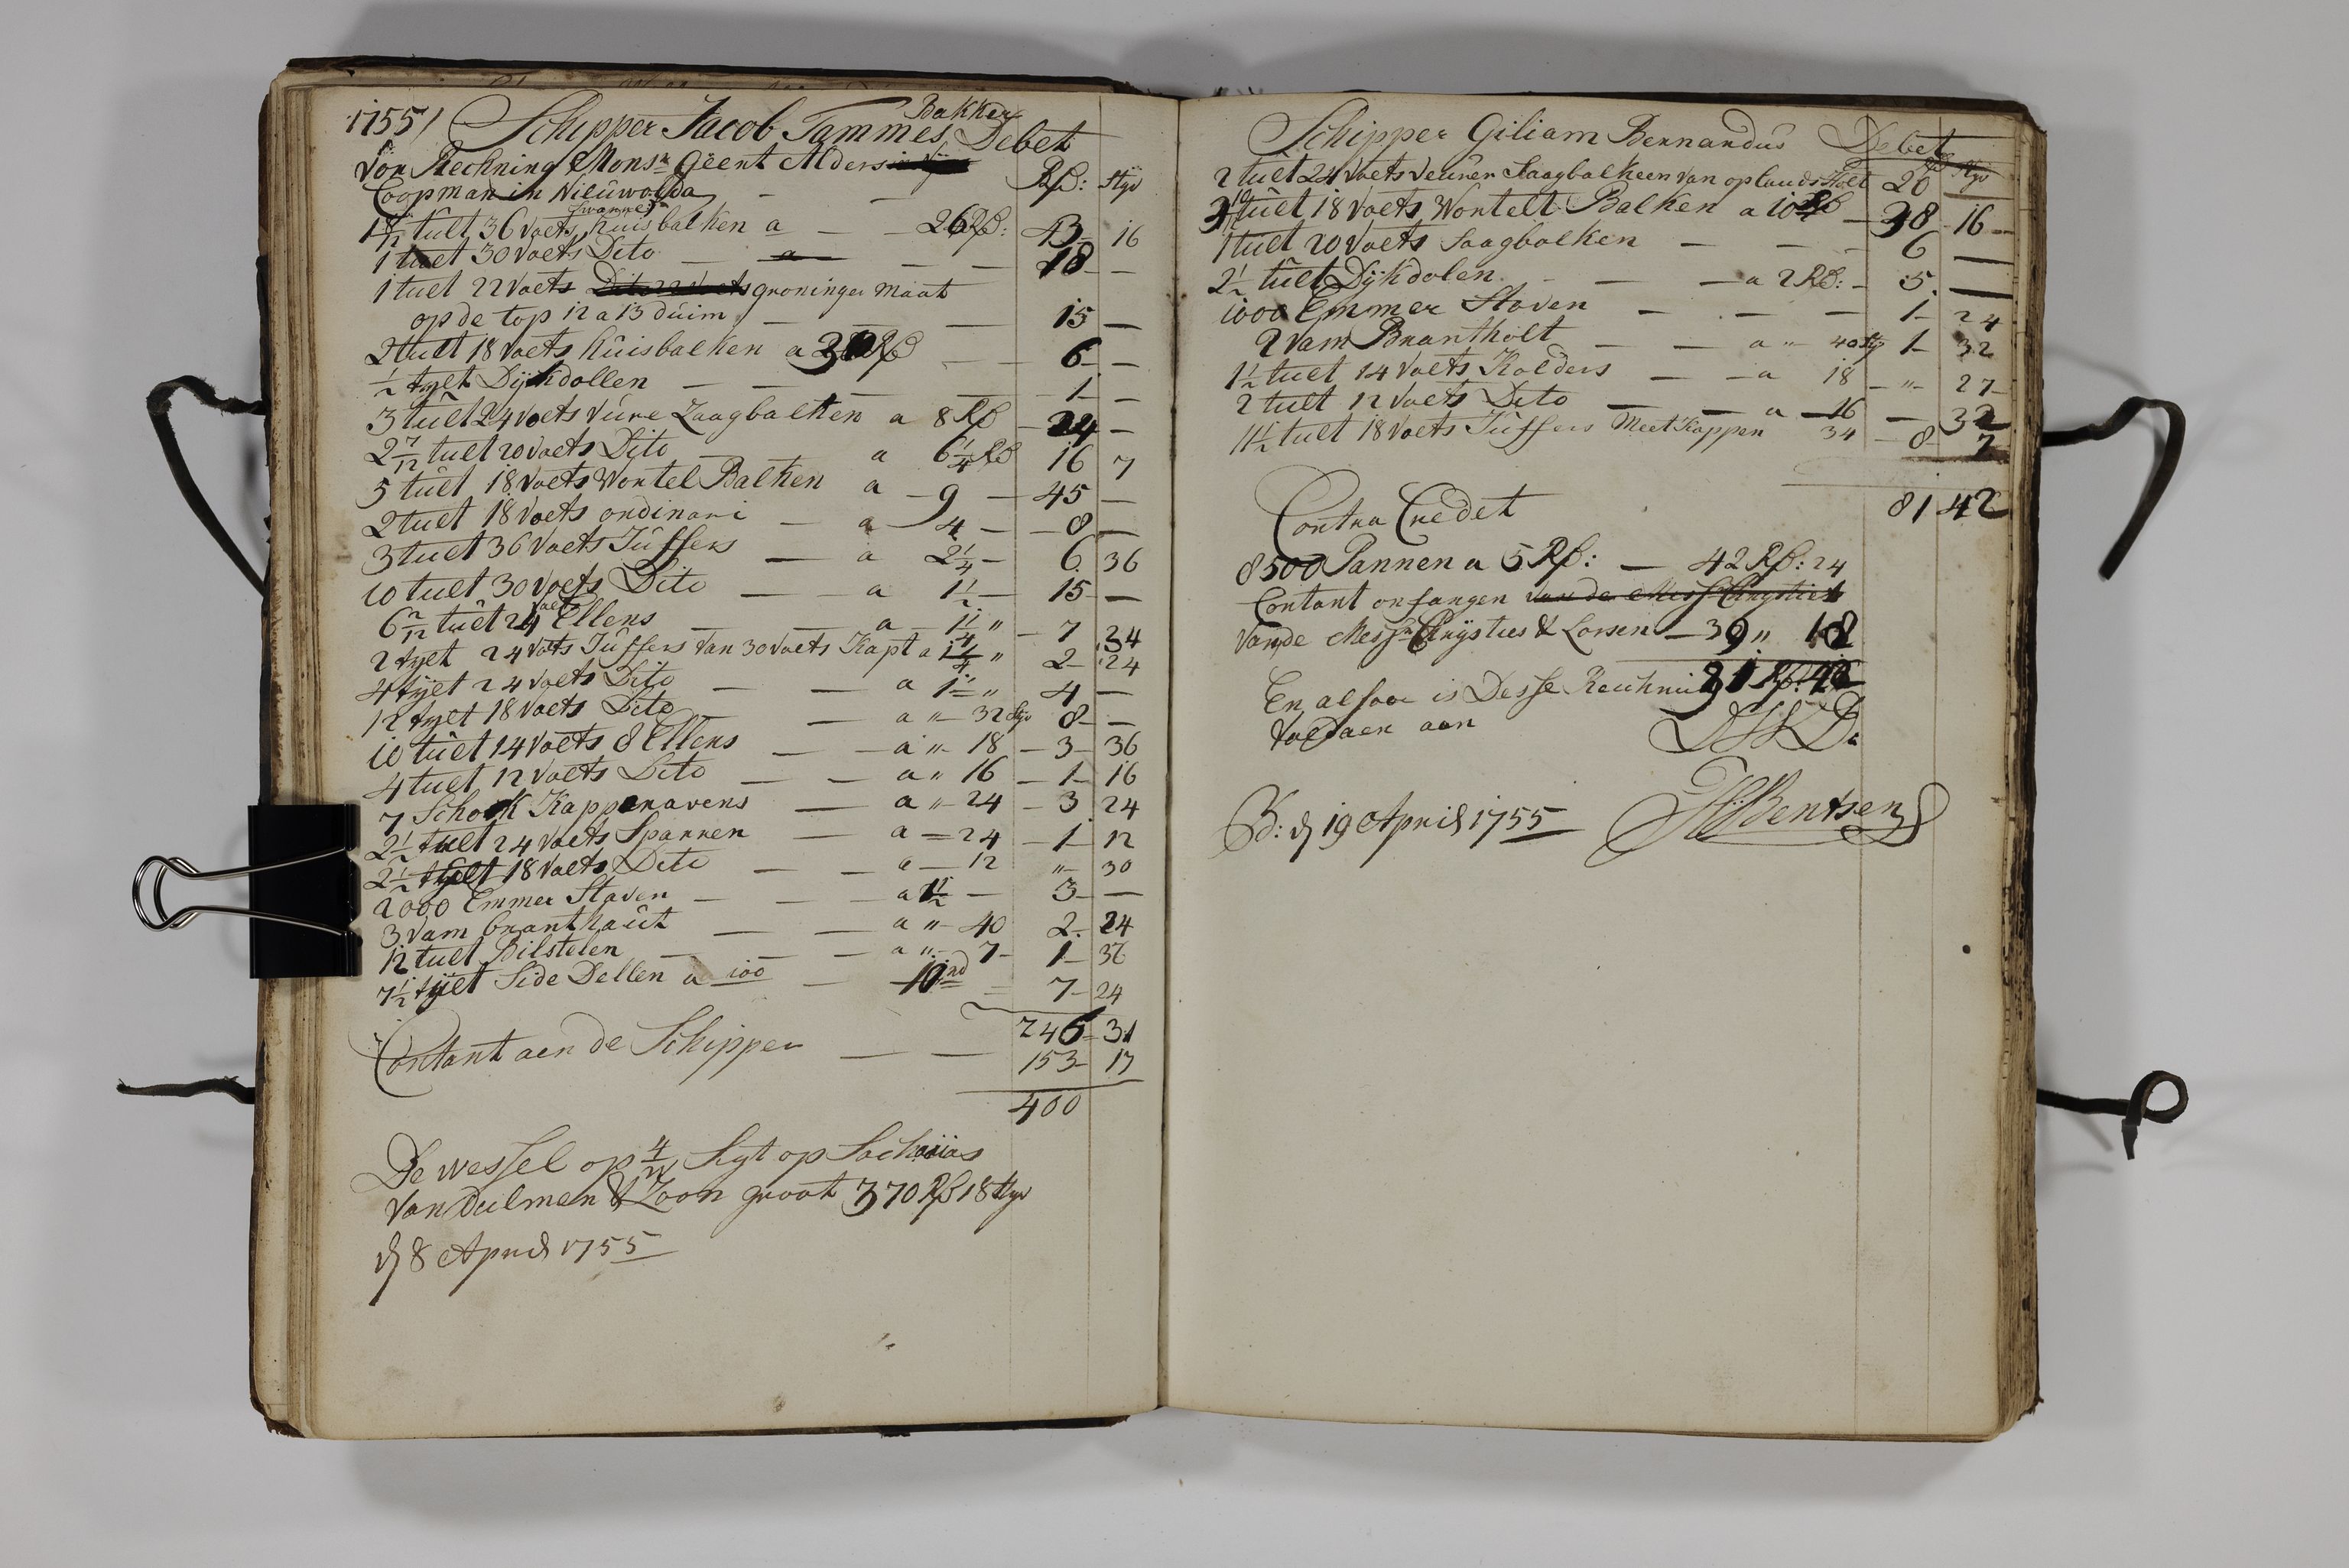 1755/ Schipper Jacob Tammes Bakker Debet
Vor Reckning Monsr Geent Alders
Coopman in Nieuwolda Rß: Styv
tult 36 Voets swarre huisbalken a — — 26 Rß: 43 16
1 tult 30 Voets Dito — — — 18 —
1 tult 22 Voets groninger maat
op de top 12 a 13 duim — — — 15 —
2 tult 18 Voets huisbalken a 3 Rß — 6 —
1/2 tylt Dijkdollen — — — 1 —
3 tult 24 Voets Vure Zaagbalken a 8 Rß — 24 —
2 7/12 tult 20 Voets Dito — a 6 1/4 Rß 16 7
5 tult 18 Voets Wortel Balken a — 9 — 45 —
2 tult 18 Voets ordinari — a 4 — 8 —
3 tult 36 Voets Juffers — a 2 1/4 — 6 36
10 tult 30 Voets Dito — — a 1 1/2 — 15 —
6 2/12 tult 24 Voets Ellens — — a 7 34
2 tylt 24 Voets Juffers Van 30 Voets Kapt a 1 1/4 " 2 — 24
4 tylt 24 Voets Dito — — a 1 " 4 —
12 tylt 18 Voets Dito — — a " 32 Styv 8 —
10 tult 14 Voets 8 Ellens — — a " 18 — 3 — 36
4 tult 12 Voets Dito — — a " 16 — 1 — 16
7 Schok Kapperavens — a " 24 — 3 24
2 1/2 tult 24 Voets Sparren — a = 24 — 1 — 12
2 1/2 tylt 18 Voets Dito — — a — 12 " — 30
2000 Emmer Staven — — — a 1 1/2 — 3 —
3 Vam branthout — — a " 40 2 — 24
12 tult Bilstelen — — — a " 7 — 1 — 36
7 1/2 tylt Side Dellen a 100 — 7 — 24
246 — 31
Contant aen de Schipper — — 153 — 17
400
De wessel op 4/W Sigt op Sacharias
Van Dulmen & Zoon groot 370 Rß 18 Styv
d 8 April 1755
Schipper Giliam Bernardus Debet
2 tult 24 Voets Veuren Saagbalkeen Van oplands Holt 20 Styv
tult 18 Voets Wortelt Balken a 10 Rß — 38 — 16 —
1 tult 20 Voets Saagbalken — — — 6 —
2 1/2 tult Dijkdolen — — — a 2 Rß: — 5 —
1000 Emmer Staven — — — 1 — 24
2 Vam Brantholt — — a " 40 Sty 1 — 32
1 1/2 tult 14 Voets Kolders — — a 18 — " — 27 —
2 tult 12 Voets Dito — — a — 16 — 32
11 1/2 tult 18 Voets Juffers Meet Kappen 34 — 8 — 7
81 42
Contra Credet
8500 Pannen a 5 Rß: — 42 Rß: 24
Contant onfangen
Vande Messrs Chrysties & Lorsen — 39 " 18
En alsoo is Desse Reichnung 81 Rß: 42
Voldaen aen
d 19 April 1755 Bentsen